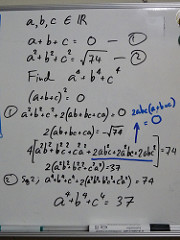 a, b, c ∈ ℝ
a + b + c = 0 — ①
a² + b² + c² = √74 — ②
Find a⁴ + b⁴ + c⁴
(a+b+c)² = 0
① a² + b² + c² + 2(ab+bc+ca) = 0
2abc(a+b+c) = 0
2(ab+bc+ca) = -√74
4[a²b² + b²c² + c²a² + 2ab²c + 2a²bc + 2abc²] = 74
2(a²b² + b²c² + c²a²) = 37
② Sq; a⁴ + b⁴ + c⁴ + 2(a²b² + b²c² + c²a²) = 74
a⁴ + b⁴ + c⁴ = 37